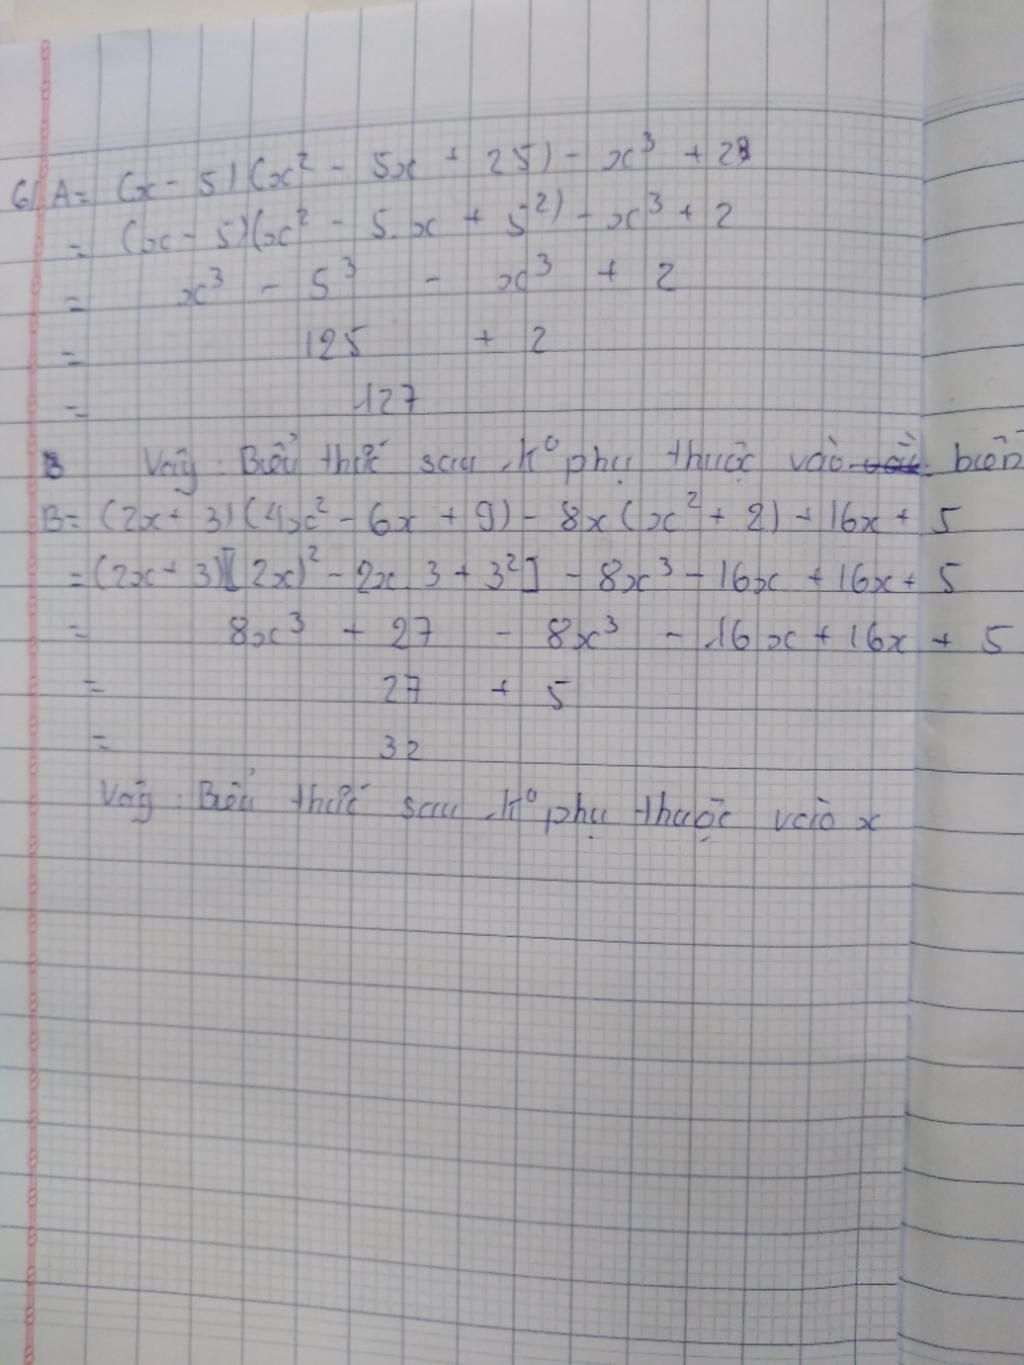 6/ A = (x - 5)(x² - 5x + 25) - x³ + 2
= (x - 5)(x² - 5.x + 5²) - x³ + 2
= x³ - 5³ - x³ + 2
= 125 + 2
= 127
Vậy: Biểu thức sau k⁰ phụ thuộc vào biến
B = (2x + 3)(4x² - 6x + 9) - 8x(x² + 2) + 16x + 5
= (2x + 3)[2x)² - 2x.3 + 3²] - 8x³ - 16x + 16x + 5
= 8x³ + 27 - 8x³ - 16x + 16x + 5
= 27 + 5
= 32
Vậy: Biểu thức sau k⁰ phụ thuộc vào x